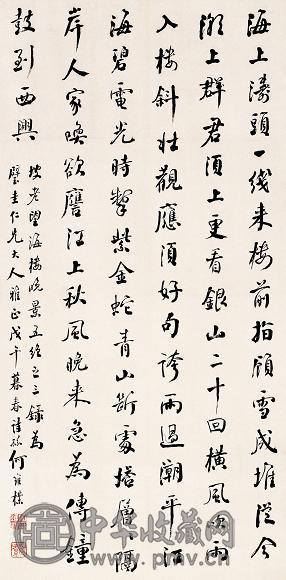 海上濤頭一綫来樓前指顧雪成堆從今
潮上群君須上更看銀山二十回橫風吹雨
入樓斜壯觀應須好句誇雨過潮平江
海碧電光時掣紫金蛇青山斷處塔層層隔
岸人家喚欲譍江上秋風晚来急為傳鐘
鼓到西興
坡老望海樓晚景五絕之三錄為
璧圭仁兄大人雅正戊午暮春詩孫何維樸